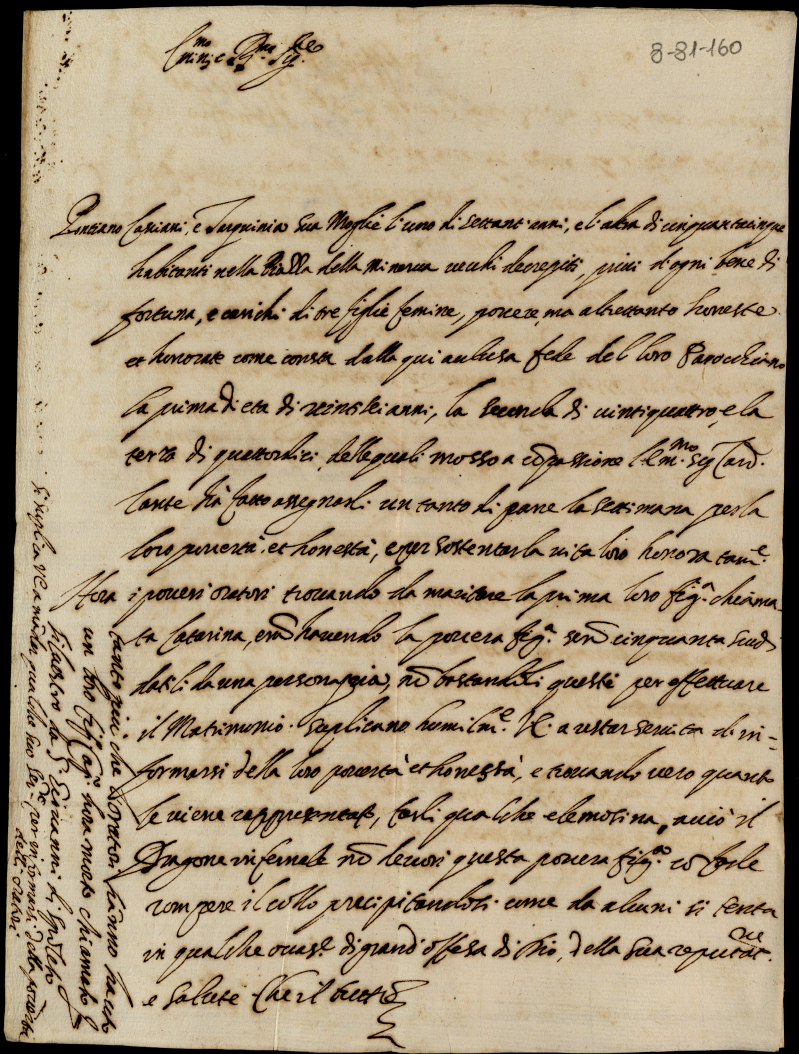 8-81-160
Ponziano Casiani, e Tarquinia sua Moglie l'uno di settant'anni, e l'altra di cinquantacinque
habitanti nella Piazza della Minerva vecchi decrepiti, privi d'ogni bene di
fortuna, e carichi di tre figlie femine, povere, ma altrettanto honeste
et honorate come consta dalla qui anclusa fede del loro Parochiano
la prima di eta di vintisei anni, la seconda di vintiquattro, e la
terza di quattordici, delle quali mosso a cõpassione l'Em.mo Sig Card.
Lante hà fatto assegnarli un tanto di pane la settimana per la
loro povertà, et honestà, e per sostentar la vita loro honoratam.e
Hora i poveri oratori trovando da maritare la prima loro fig.a chiama
ta Caterina, havendo la povera fig.a cinquanta scudi
datili da una persona pia, nõ bastandoli questi per effettuare
il Matrimonio. Suplicano humilm.e V. a restar servita di in-
formarsi della loro povertà et honestà, e trovando vero quanto
le viene rappresentato, farli qualche elemosina, acciò il
Dragone infernale nõ devori questa povera fig.a cõ farle
rompere il collo precipitandosi come da alcuni si tenta
in qualche occas.e di grand'offesa di Dio, della sua reputat.ne
e salute Che il tutto
tanto più che l'oratori hanno
un loro hora morto chiamato
Silvestro da S. Giovanni di
Si suplica V. a mandar qualche suo per informarsi della povertà
delli oratori